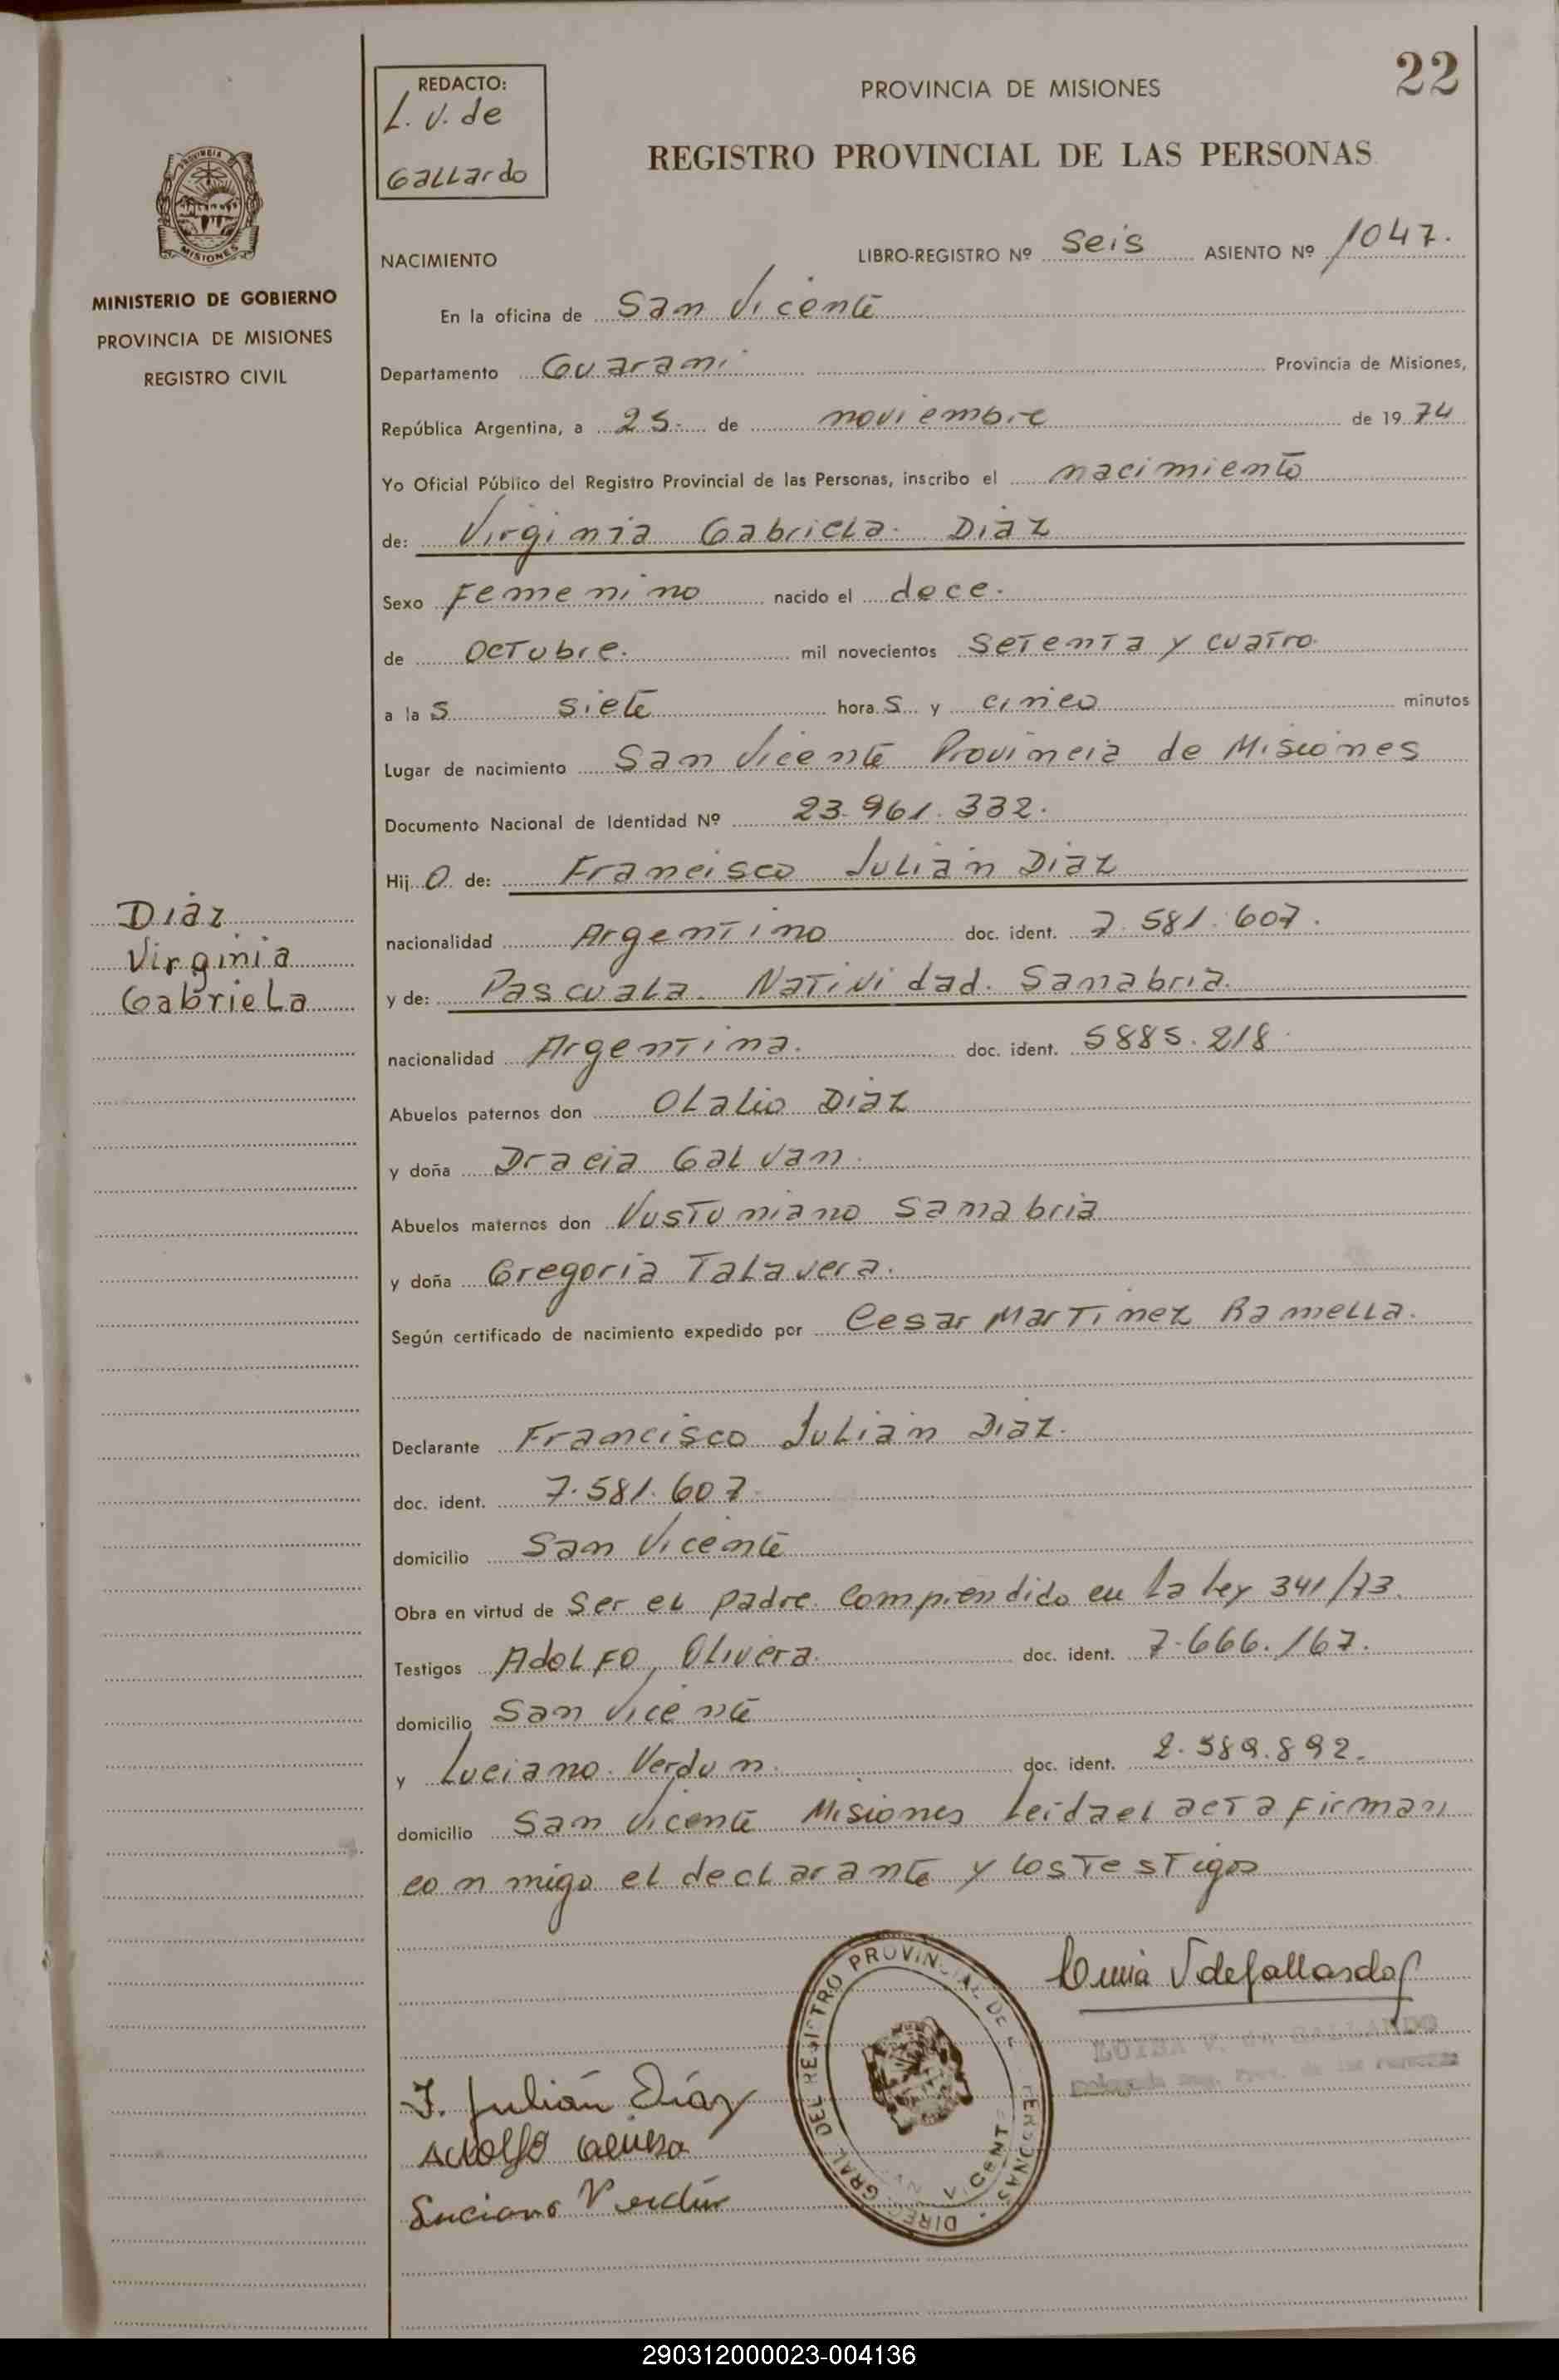 22
REDACTO:
L. V. de
Gallardo
PROVINCIA DE MISIONES
REGISTRO PROVINCIAL DE LAS PERSONAS
PROVINCIA DE
MISIONES
MINISTERIO DE GOBIERNO
PROVINCIA DE MISIONES
REGISTRO CIVIL
NACIMIENTO LIBRO-REGISTRO Nº Seis ASIENTO Nº 1047.
En la oficina de San Vicente
Departamento Guarani Provincia de Misiones,
República Argentina, a 25- de noviembre de 1974
Yo Oficial Público del Registro Provincial de las Personas, inscribo el nacimiento
de: Virginia Gabriela. Diaz
Sexo Femenino nacido el doce.
de Octubre. mil novecientos Setenta y cuatro
a las siete horas y cinco minutos
Lugar de nacimiento San Vicente Provincia de Misiones
Documento Nacional de Identidad Nº 23.961.332.
Hijo de: Francisco Julian Diaz
nacionalidad Argentino doc. ident. 7.581.607.
y de: Pascuala Natividad. Sanabria.
nacionalidad Argentina. doc. ident. 5885.218
Diaz
Virginia
Gabriela
Abuelos paternos don Olalio Diaz
y doña Dracia Galvan.
Abuelos maternos don Vustuniano Sanabria
y doña Gregoria Talavera.
Según certificado de nacimiento expedido por Cesar Martinez Ramella.
Declarante Francisco Julian Diaz.
doc. ident. 7.581.607
domicilio San Vicente
Obra en virtud de Ser el padre. Comprendido en la ley 341/73.
Testigos Adolfo, Olivera. doc. ident. 7.666.167.
domicilio San Vicente
y Luciano. Verdun. doc. ident. 2.589.892.
domicilio San Vicente Misiones Leida el acta firman
conmigo el declarante y los testigos
V de Gallardo
LUISA V. de GALLARDO
DIREC. GRAL. DEL REGISTRO PROVINCIAL DE PERSONAS
VICENTE
F. Julián Díaz
Adolfo Olivera
Luciano Verdún
290312000023-004136